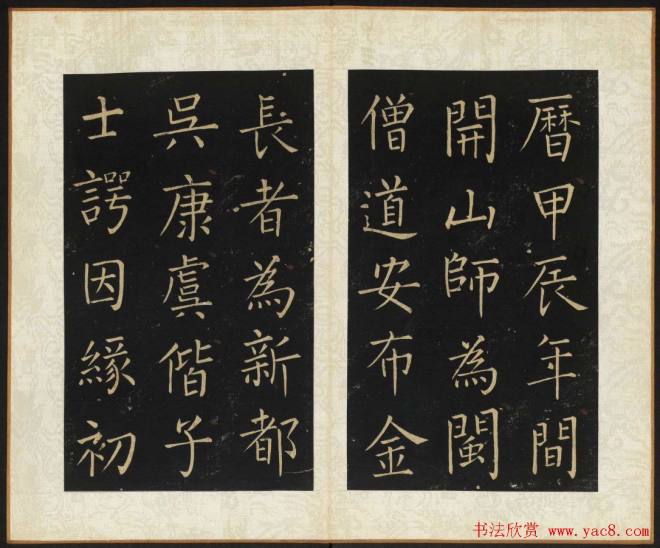 曆甲辰年間
開山師為閩
僧道安布金
長者為新都
吳康虞偕子
士諤因緣初
书法欣赏 www.yac8.com